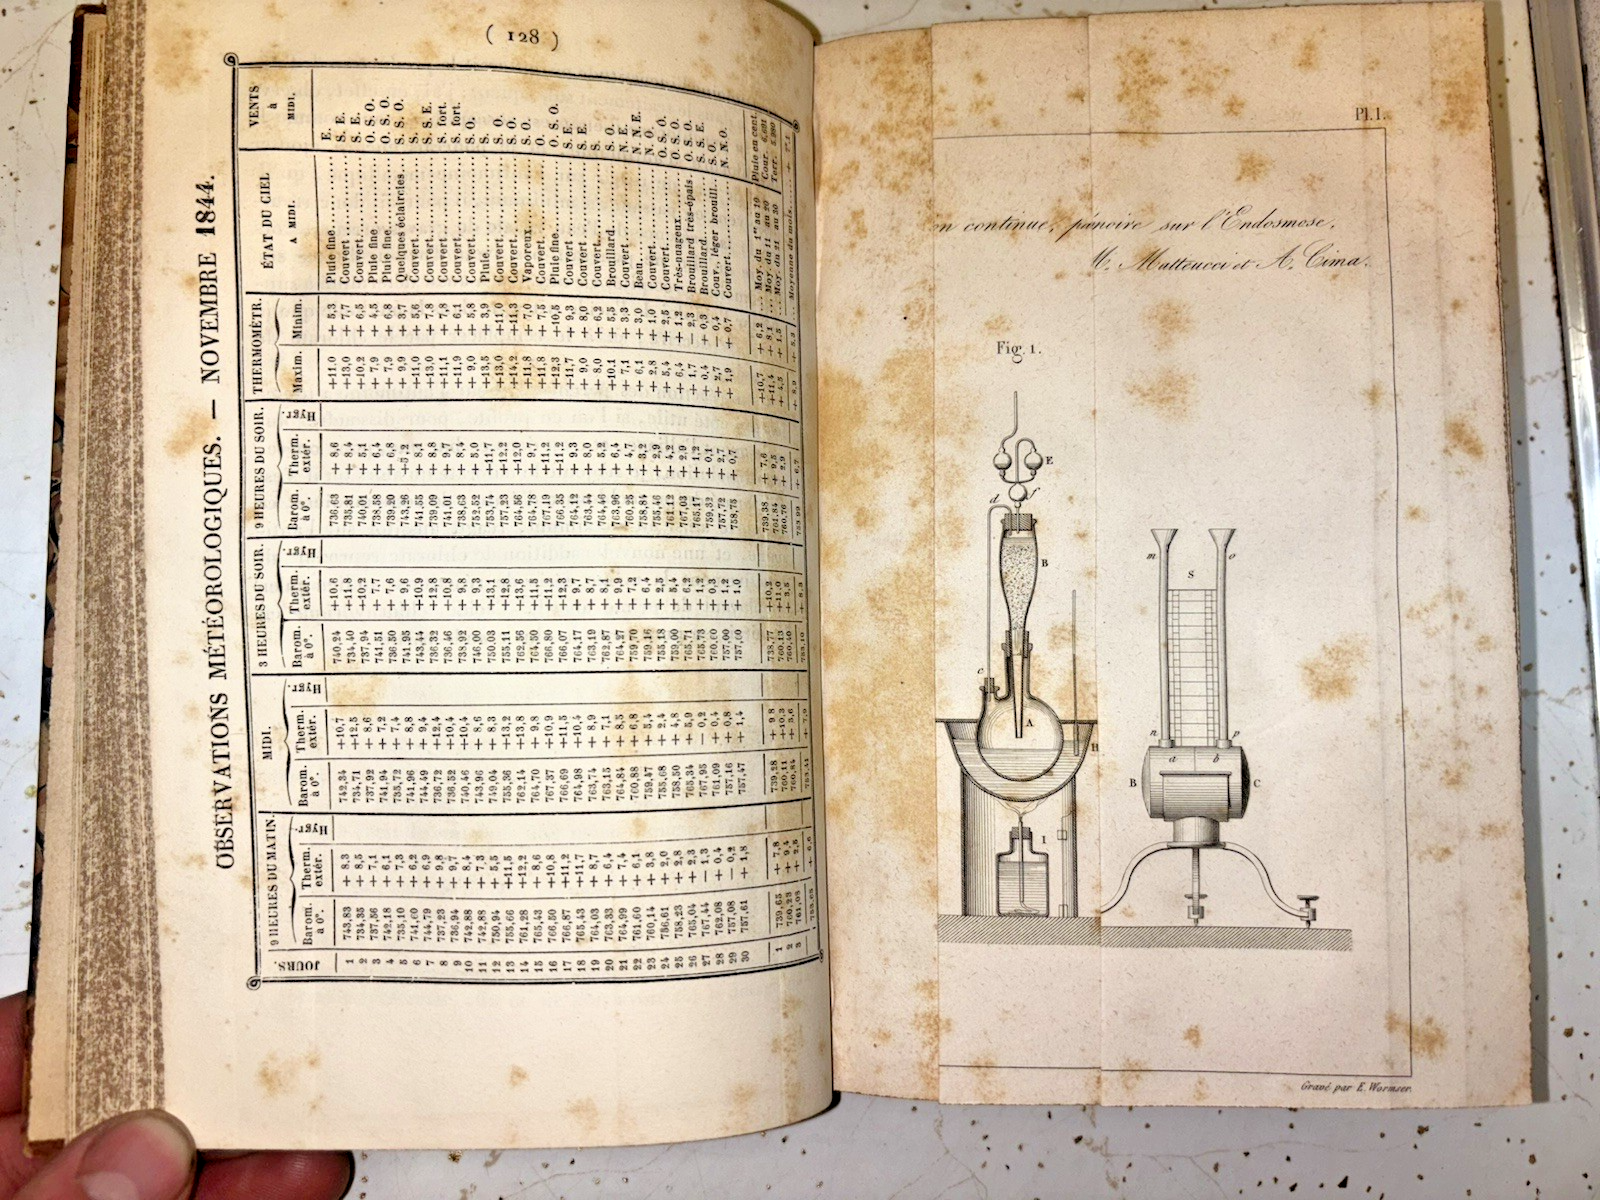 ( 128 )
OBSERVATIONS MÉTÉOROLOGIQUES. — NOVEMBRE 1844.
JOURS. 9 HEURES DU MATIN. MIDI. 3 HEURES DU SOIR. 9 HEURES DU SOIR. THERMOMÉTR. ÉTAT DU CIEL A MIDI. VENTS à MIDI.
Barom. à 0°. Therm. extér. Hygr. Barom. à 0°. Therm. extér. Hygr. Barom. à 0°. Therm. extér. Hygr. Barom. à 0°. Therm. extér. Hygr. Maxim. Minim.
1 743,83 + 8,3 742,34 +10,7 740,24 +10,6 736,63 + 8,6 +11,0 + 5,3 Pluie fine E.
2 734,35 + 8,5 734,71 +12,5 734,40 +11,8 735,81 + 8,4 +13,0 + 7,7 Couvert S. E.
3 737,56 + 7,1 737,92 + 8,6 737,94 +10,2 740,01 + 5,1 +10,2 + 6,5 Couvert S. E.
4 742,18 + 6,1 741,94 + 7,2 741,51 + 7,7 738,58 + 6,4 + 7,9 + 4,5 Pluie fine O. S. O.
5 735,10 + 7,3 735,72 + 7,4 736,50 + 7,6 739,20 + 6,8 + 7,9 + 6,8 Pluie fine O. S. O.
6 741,60 + 6,2 741,96 + 8,8 741,95 + 9,6 743,26 +5,2 + 9,9 + 3,7 Quelques éclaircies S. S. O.
7 744,79 + 6,9 744,49 + 9,4 743,44 +10,9 741,55 + 8,1 +11,0 + 5,6 Couvert S.
8 737,23 + 9,8 736,72 +12,4 736,32 +12,8 739,09 + 8,8 +13,0 + 7,8 Couvert S. S. E.
9 736,94 + 9,7 736,52 +10,9 736,46 +10,8 741,01 + 9,7 +11,1 + 7,8 Couvert S. fort.
10 742,88 + 8,4 740,46 +10,4 738,92 + 9,8 738,63 + 8,4 +11,9 + 6,1 Couvert S. fort.
11 742,88 + 7,3 743,96 + 8,6 746,00 + 9,3 752,52 + 5,0 + 9,0 + 5,8 Couvert S. O.
12 750,94 + 5,5 749,04 + 8,3 750,03 +13,1 753,74 +11,7 +13,5 + 3,9 Pluie S.
13 755,66 +11,5 755,36 +13,2 755,11 +12,8 757,23 +12,2 +13,0 +11,0 Couvert S. O.
14 761,28 +12,2 762,14 +13,8 762,56 +13,6 764,56 +12,0 +14,2 +11,3 Couvert S. O.
15 765,43 + 8,6 764,70 + 9,8 764,50 +11,5 764,78 + 9,7 +11,8 + 7,0 Vaporeux S. O.
16 766,50 +10,8 767,37 +10,9 766,80 +11,2 767,19 +11,2 +11,8 + 7,5 Couvert O.
17 766,87 +11,2 766,69 +11,5 766,07 +12,3 766,35 +11,2 +12,3 +10,5 Pluie fine O. S. O.
18 765,43 +11,7 764,98 +10,4 764,17 + 9,7 764,12 + 9,3 +11,7 + 9,3 Couvert S. E.
19 764,03 + 8,7 763,74 + 8,9 763,19 + 8,7 763,44 + 8,0 + 9,0 + 8,0 Couvert S. E.
20 763,33 + 6,4 763,15 + 7,1 762,87 + 8,1 764,46 + 5,2 + 8,0 + 6,2 Couvert S.
21 764,99 + 7,4 764,84 + 8,5 764,27 + 9,9 763,96 + 6,4 +10,1 + 5,5 Brouillard S. O.
22 761,60 + 6,1 760,88 + 6,8 759,70 + 7,2 760,25 + 4,7 + 7,1 + 3,3 Couvert N. E.
23 760,14 + 3,8 759,47 + 5,4 759,16 + 6,4 758,84 + 3,2 + 6,1 + 3,0 Beau N. N. E.
24 756,61 + 2,0 755,68 + 2,4 755,18 + 2,5 755,46 + 2,9 + 2,8 + 1,0 Couvert N. O.
25 758,23 + 2,8 758,50 + 4,8 759,00 + 5,4 761,12 + 4,2 + 5,4 + 2,5 Couvert O. S. O.
26 765,04 + 2,3 765,34 + 5,9 765,71 + 6,2 767,03 + 2,9 + 6,4 + 1,2 Très-nuageux S. O.
27 767,44 — 1,3 767,95 — 0,2 765,73 + 1,2 765,17 + 1,2 + 1,7 — 2,3 Brouillard très-épais O. S. O.
28 762,08 — 0,4 761,09 + 0,4 760,60 + 0,3 759,32 + 0,1 + 0,4 — 0,3 Brouillard S. S. E.
29 757,08 — 0,2 757,16 + 0,8 757,00 + 1,2 757,72 + 2,7 + 2,7 — 0,4 Couv., léger brouill. S. O.
30 757,61 + 1,8 757,47 + 1,4 757,60 + 1,0 758,75 + 0,7 + 1,9 + 0,7 Couvert N. N. O.
1 739,65 + 7,8 739,28 + 9,8 738,77 +10,2 739,38 + 7,6 +10,7 + 6,2 Moy. du 1er au 10 Pluie en cent.
2 760,23 + 9,4 760,11 +10,3 760,13 +11,0 761,84 + 9,5 +11,4 + 8,1 Moy. du 11 au 20 Cour. 5,691
3 761,08 + 2,5 760,84 + 3,6 760,40 + 3,5 760,76 + 2,9 + 4,5 + 1,5 Moy. du 21 au 30 Terr. 5,980
+ 6,6 + 7,9 + 8,3 + 6,7 + 8,9 + 5,2 Moyenne du mois
Pl. I.
n continue, p noire sur l'Endosmose,
M. Matteucci et A. Cima.
Fig. 1.
E
d f
B
c
A
H
I
m o
S
n p
a b
B C
Gravé par E. Wormser.